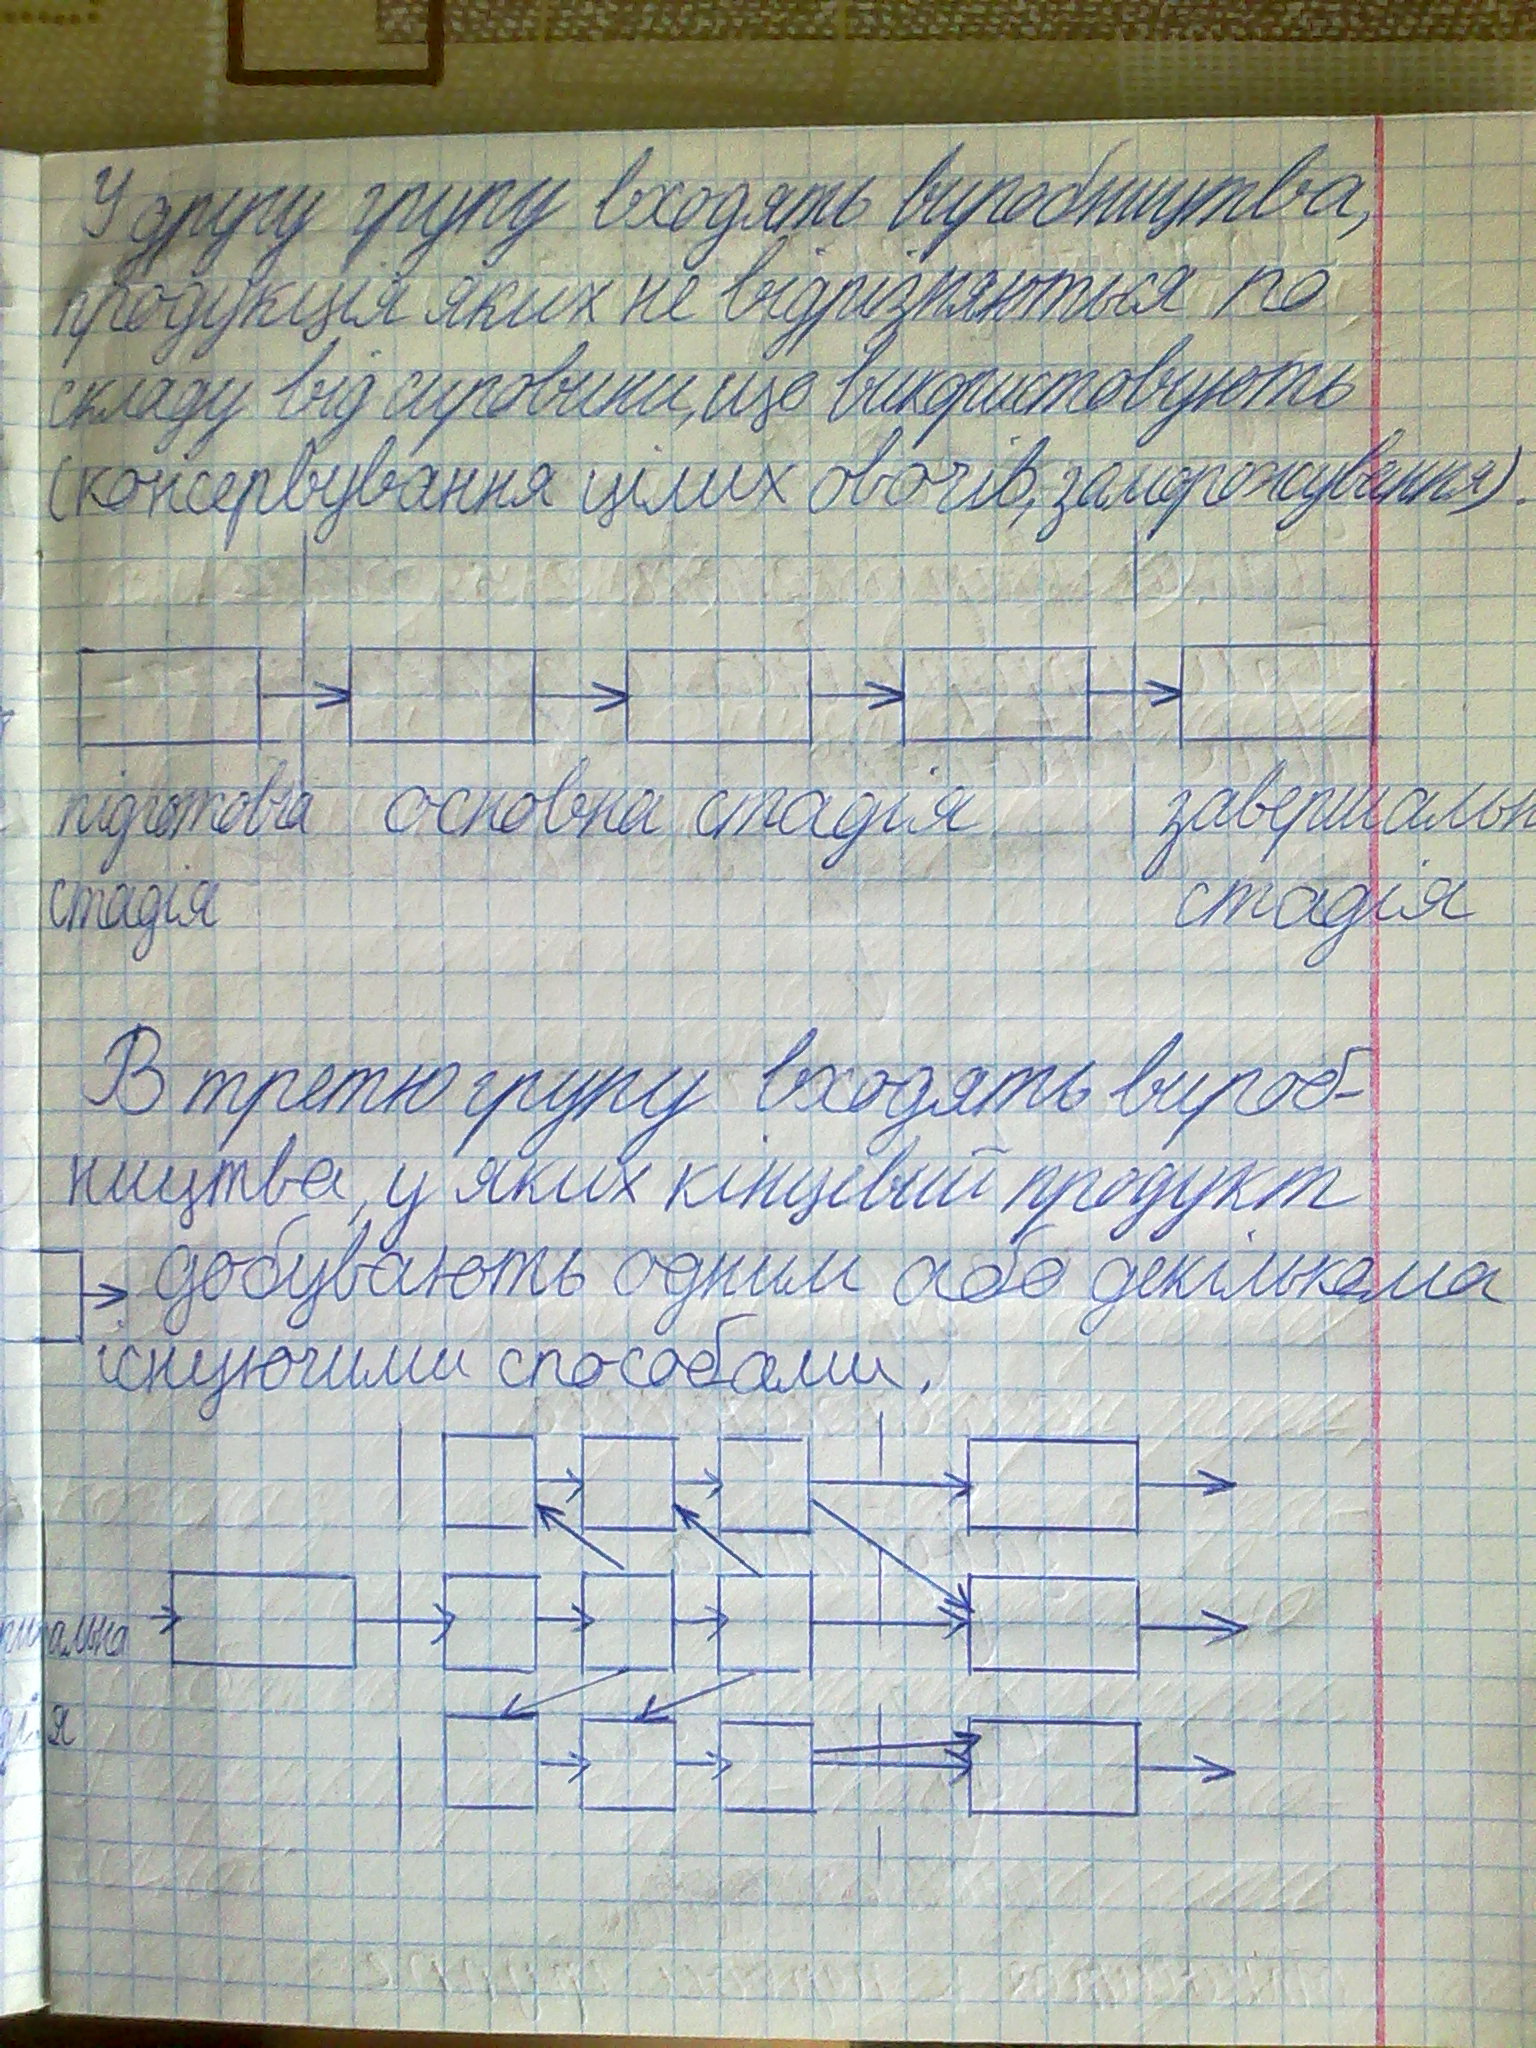 У другу групу входять виробництва,
продукція яких не відрізняються по
складу від сировини, що використовують
(консервування цілих овочів, заморожування).
підготовча основна стадія завершальн
стадія стадія
В третю групу входять вироб-
ництва, у яких кінцевий продукт
добувають одним або декількома
існуючими способами.